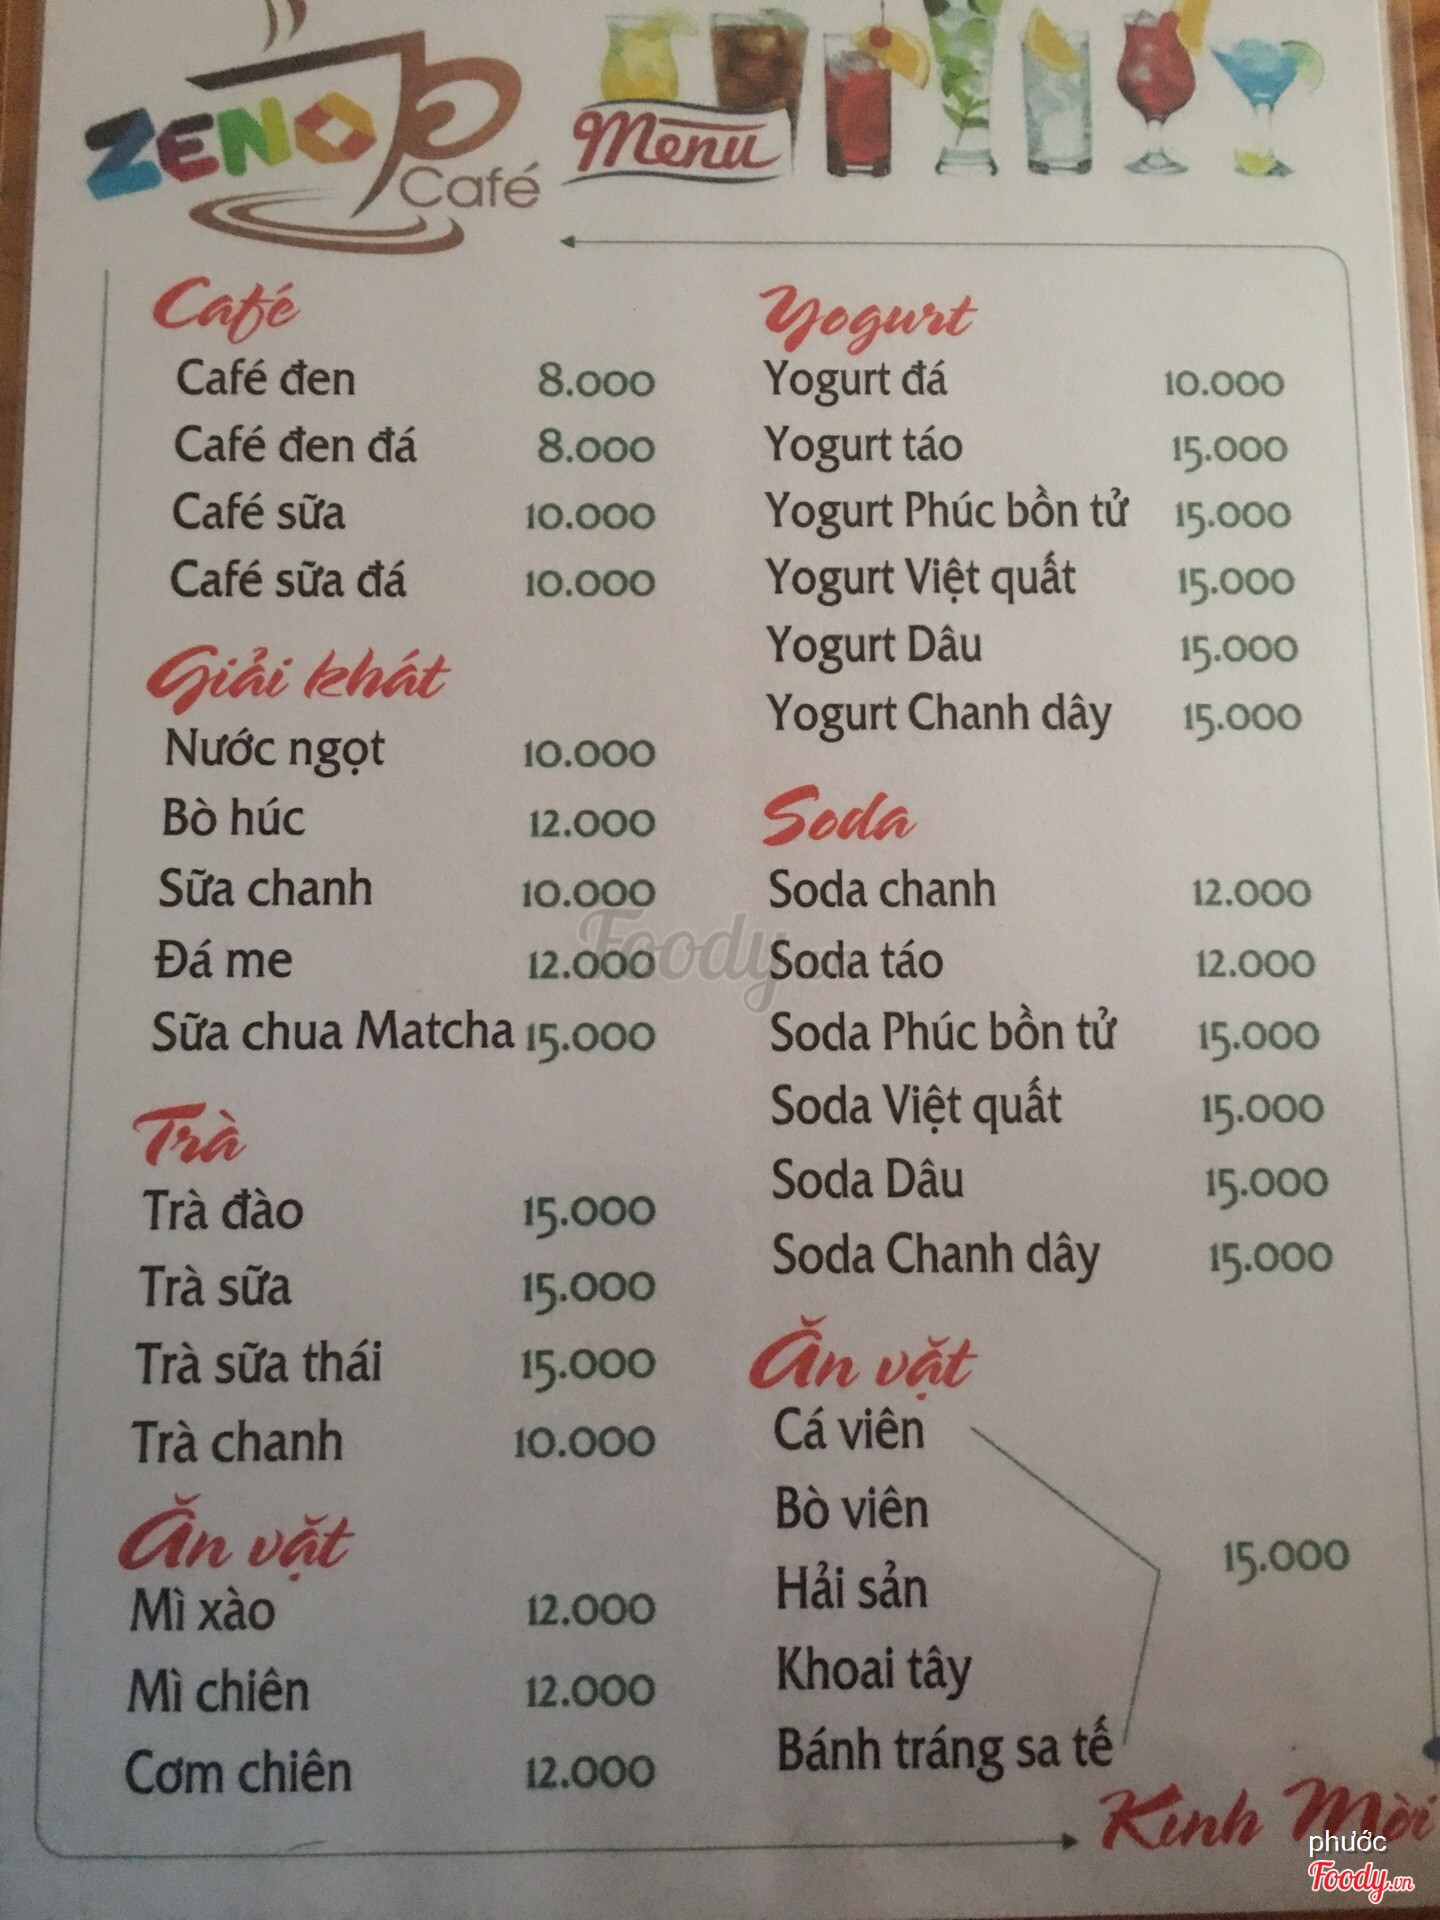 ZENO Café
Menu
Café
Café đen 8.000
Café đen đá 8.000
Café sữa 10.000
Café sữa đá 10.000
Giải khát
Nước ngọt 10.000
Bò húc 12.000
Sữa chanh 10.000
Đá me 12.000
Sữa chua Matcha 15.000
Trà
Trà đào 15.000
Trà sữa 15.000
Trà sữa thái 15.000
Trà chanh 10.000
Ăn vặt
Mì xào 12.000
Mì chiên 12.000
Cơm chiên 12.000
Yogurt
Yogurt đá 10.000
Yogurt táo 15.000
Yogurt Phúc bồn tử 15.000
Yogurt Việt quất 15.000
Yogurt Dâu 15.000
Yogurt Chanh dây 15.000
Soda
Soda chanh 12.000
Soda táo 12.000
Soda Phúc bồn tử 15.000
Soda Việt quất 15.000
Soda Dâu 15.000
Soda Chanh dây 15.000
Ăn vặt
Cá viên
Bò viên
Hải sản
Khoai tây
Bánh tráng sa tế
15.000
Kính Mời
Foody
phước
Foody.vn